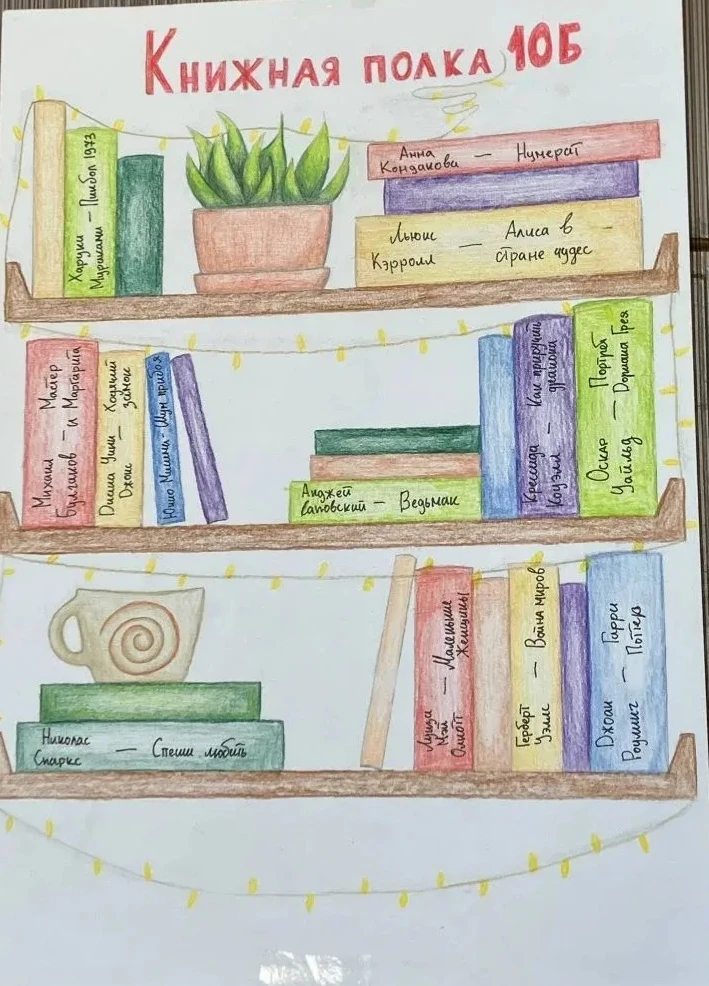 Книжная полка 10Б
Харуки
Мураками — Пинбол 1973
Анна
Кондакова — Нумерат
Льюис
Кэрролл — Алиса в
стране чудес
Михаил
Булгаков — Мастер
и Маргарита
Диана Уинн
Джонс — Ходячий
замок
Юкио Мисима - Шум прибоя
Анджей
Сапковский — Ведьмак
Крессида
Коуэлл — Как приручить
дракона
Оскар
Уайльд — Портрет
Дориана Грея
Николас
Спаркс — Спеши любить
Луиза
Мэй
Олкотт — Маленькие
Женщины
Герберт
Уэллс — Война миров
Джоан
Роулинг — Гарри
Поттер